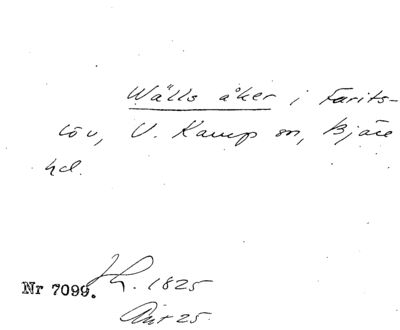 Wälls åker i Farits-
löv, V. Karup sn, Bjäre
hd.
Nr 7099. 1825
Akt 25.